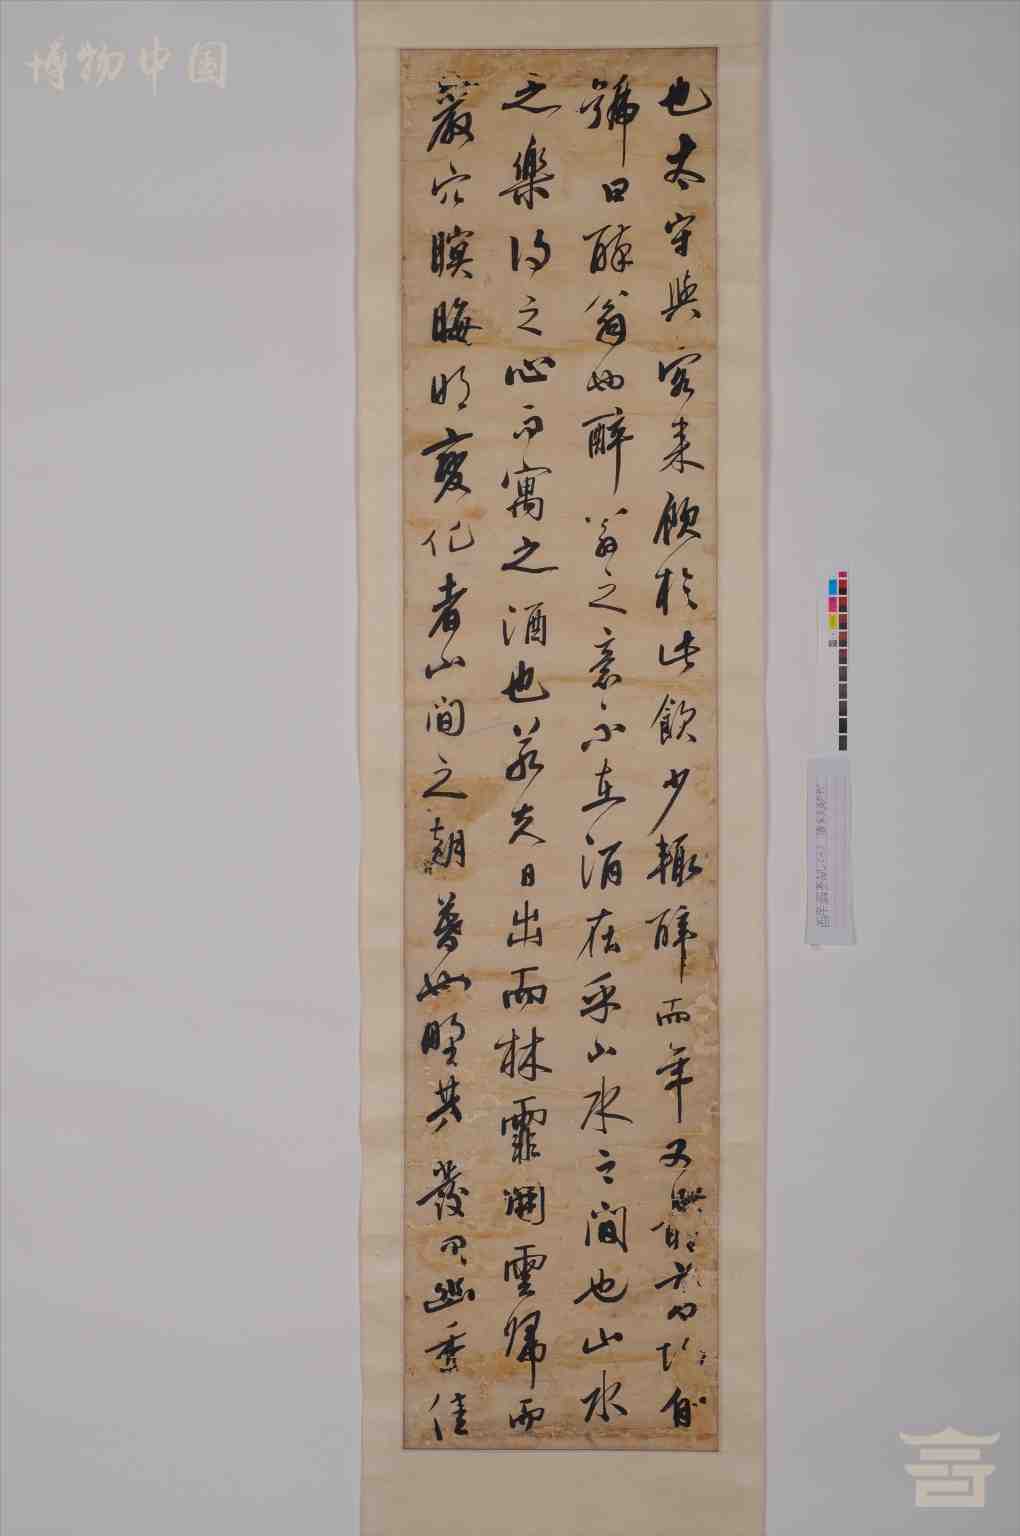 博物中国
也太守與客来飲於此飲少輒醉而年又最高故自
號曰醉翁也醉翁之意不在酒在乎山水之間也山水
之樂得之心而寓之酒也若夫日出而林霏開雲歸而
巖穴暝晦明變化者山間之朝暮也野芳發而幽香佳